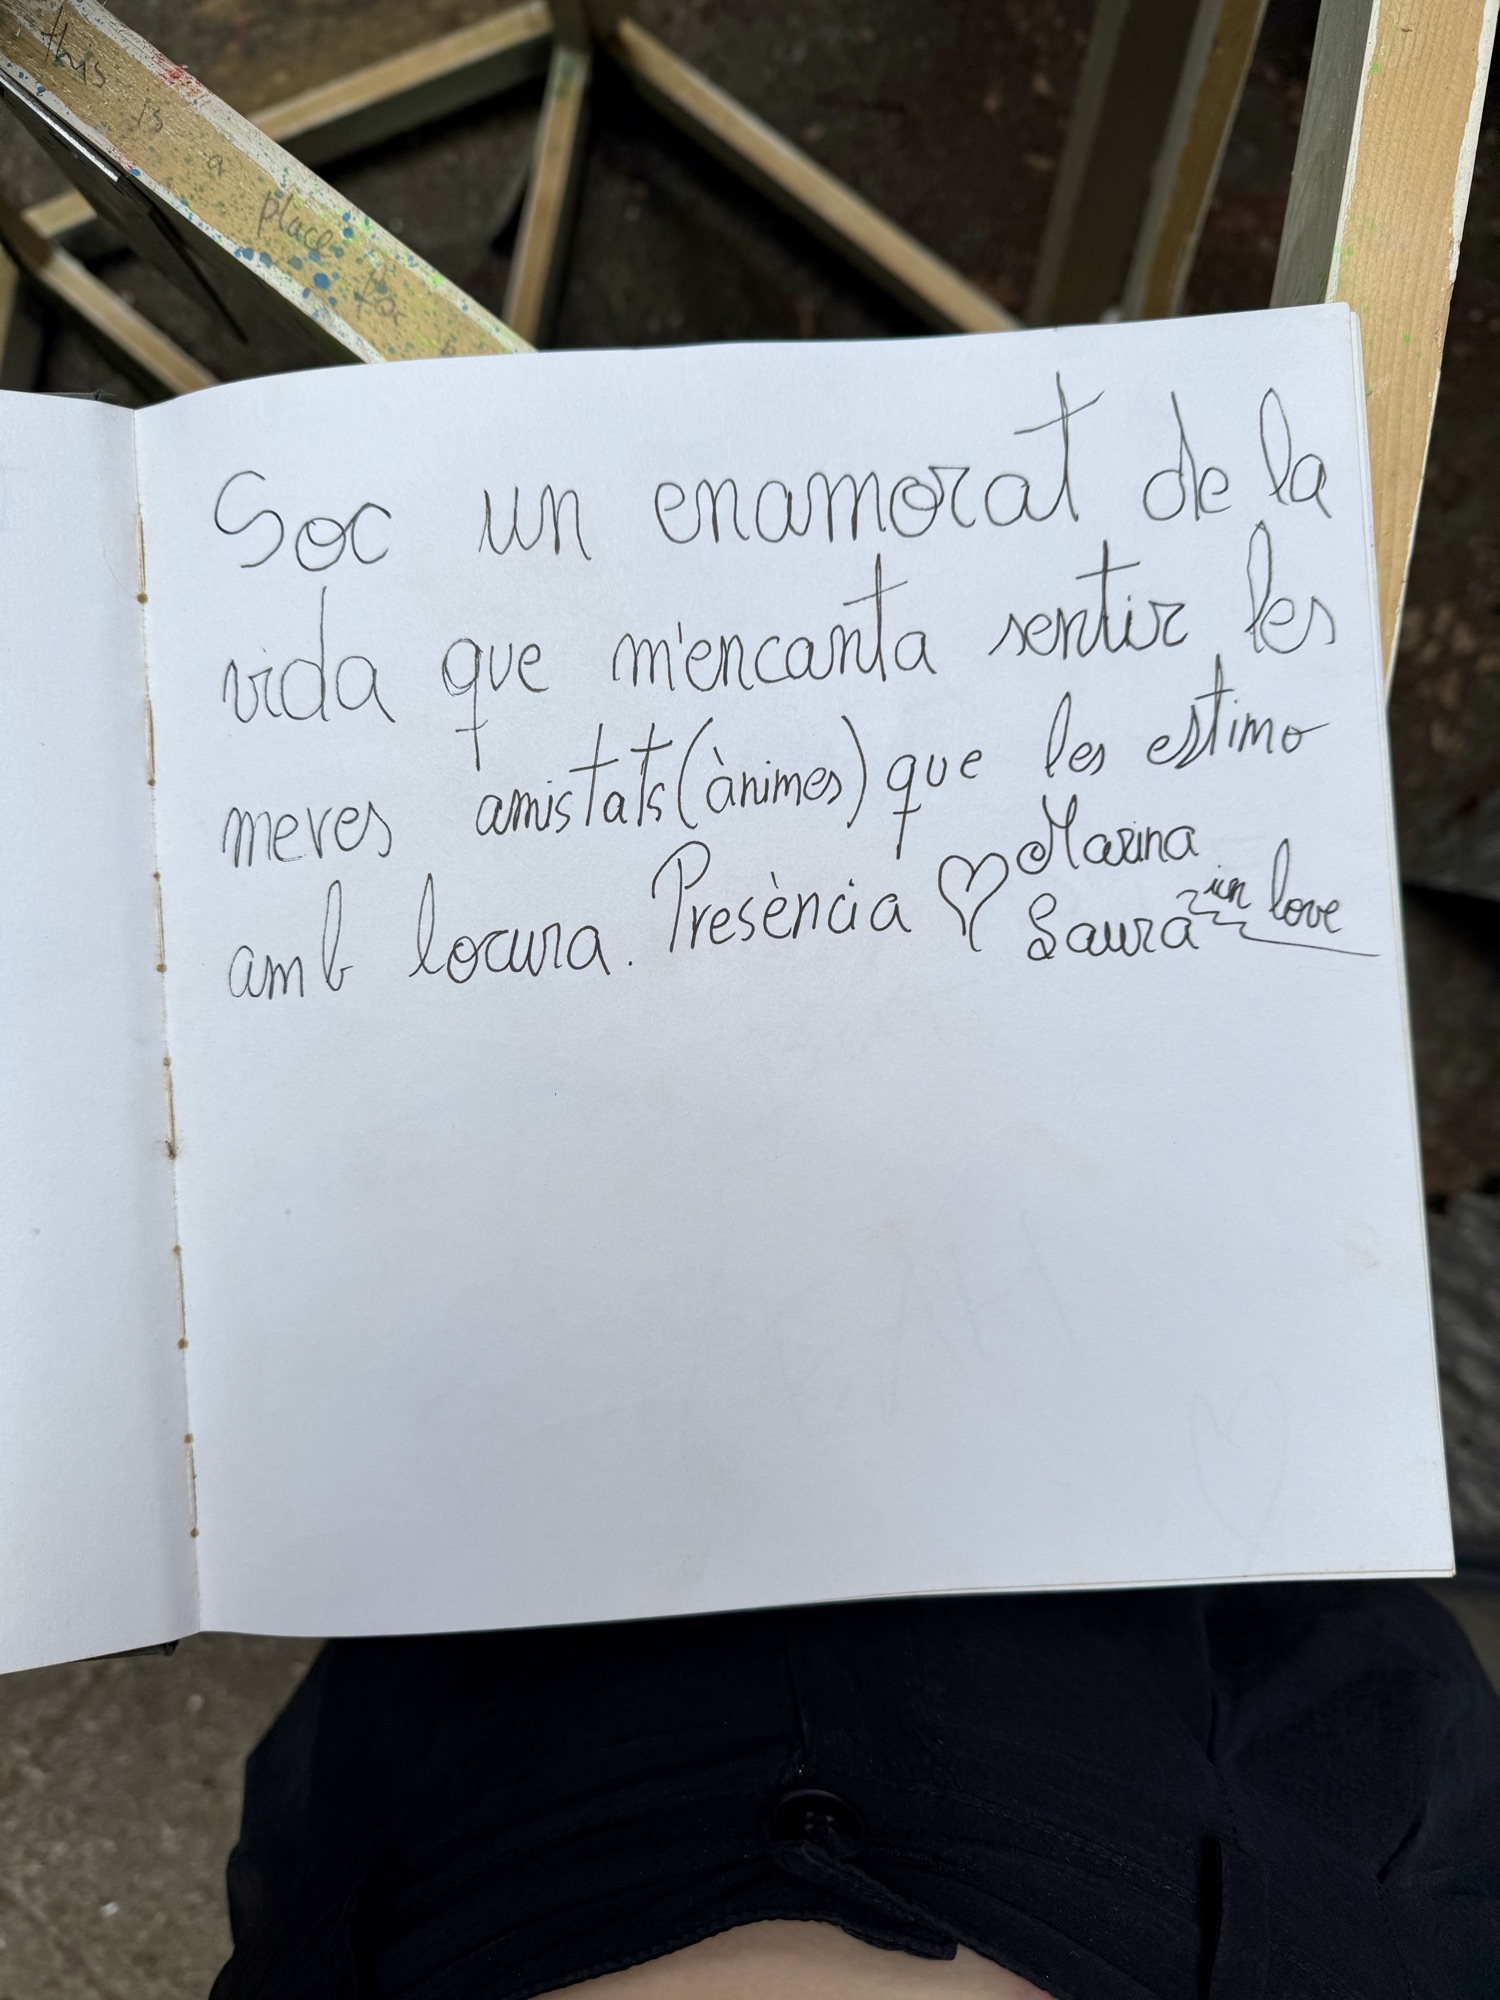 this is a place for
Soc un enamorat de la
vida que m'encanta sentir les
meves amistats (ànimes) que les estimo
amb locura. Presència ♡ Marina
Saura in love